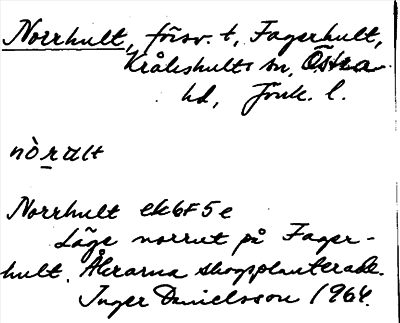 Norrhult, försv. t. Fagerhult,
Kråkshults sn, Östra
hd, Jönk. l.
nòralt
Norrhult ek6F5e
Läge norrut på Fager-
hult. Åkrarna skogsplanterade.
Inger Danielsson 1964.